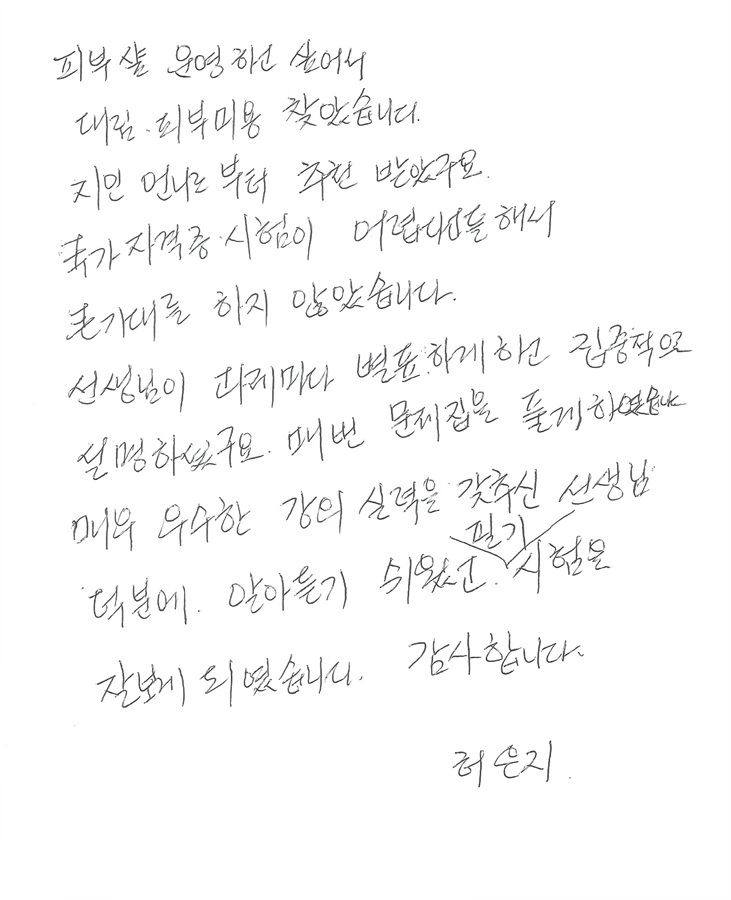 피부샾 운영하고 싶어서
대림. 피부미용 찾았습니다.
지인 언니로부터 추천 받았구요.
국가자격증 시험이 어렵다고들 해서
큰기대를 하지 않았습니다.
선생님이 과제마다 별표하게하고 집중적으로
설명하셨구요. 매번 문제집을 풀게하였습니다
매우 우수한 강의 실력을 갖추신 선생님
덕분에. 알아듣기 쉬웠고. 필기 시험은
잘보게 되였습니다. 감사합니다.
허은지.